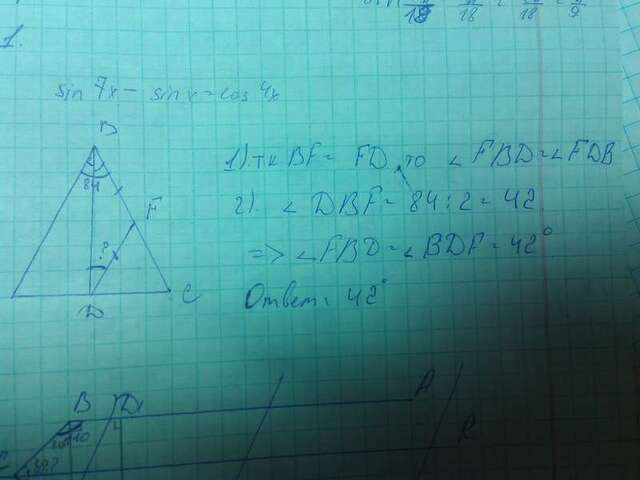 1.
sin 7x - sin x = cos 4x
B
84
F
?
D
C
1) т к BF = FD, то ∠ FBD = ∠ FDB
2). ∠ DBF = 84 : 2 = 42
=> ∠ FBD = ∠ BDF = 42°
Ответ: 42°
B D
A